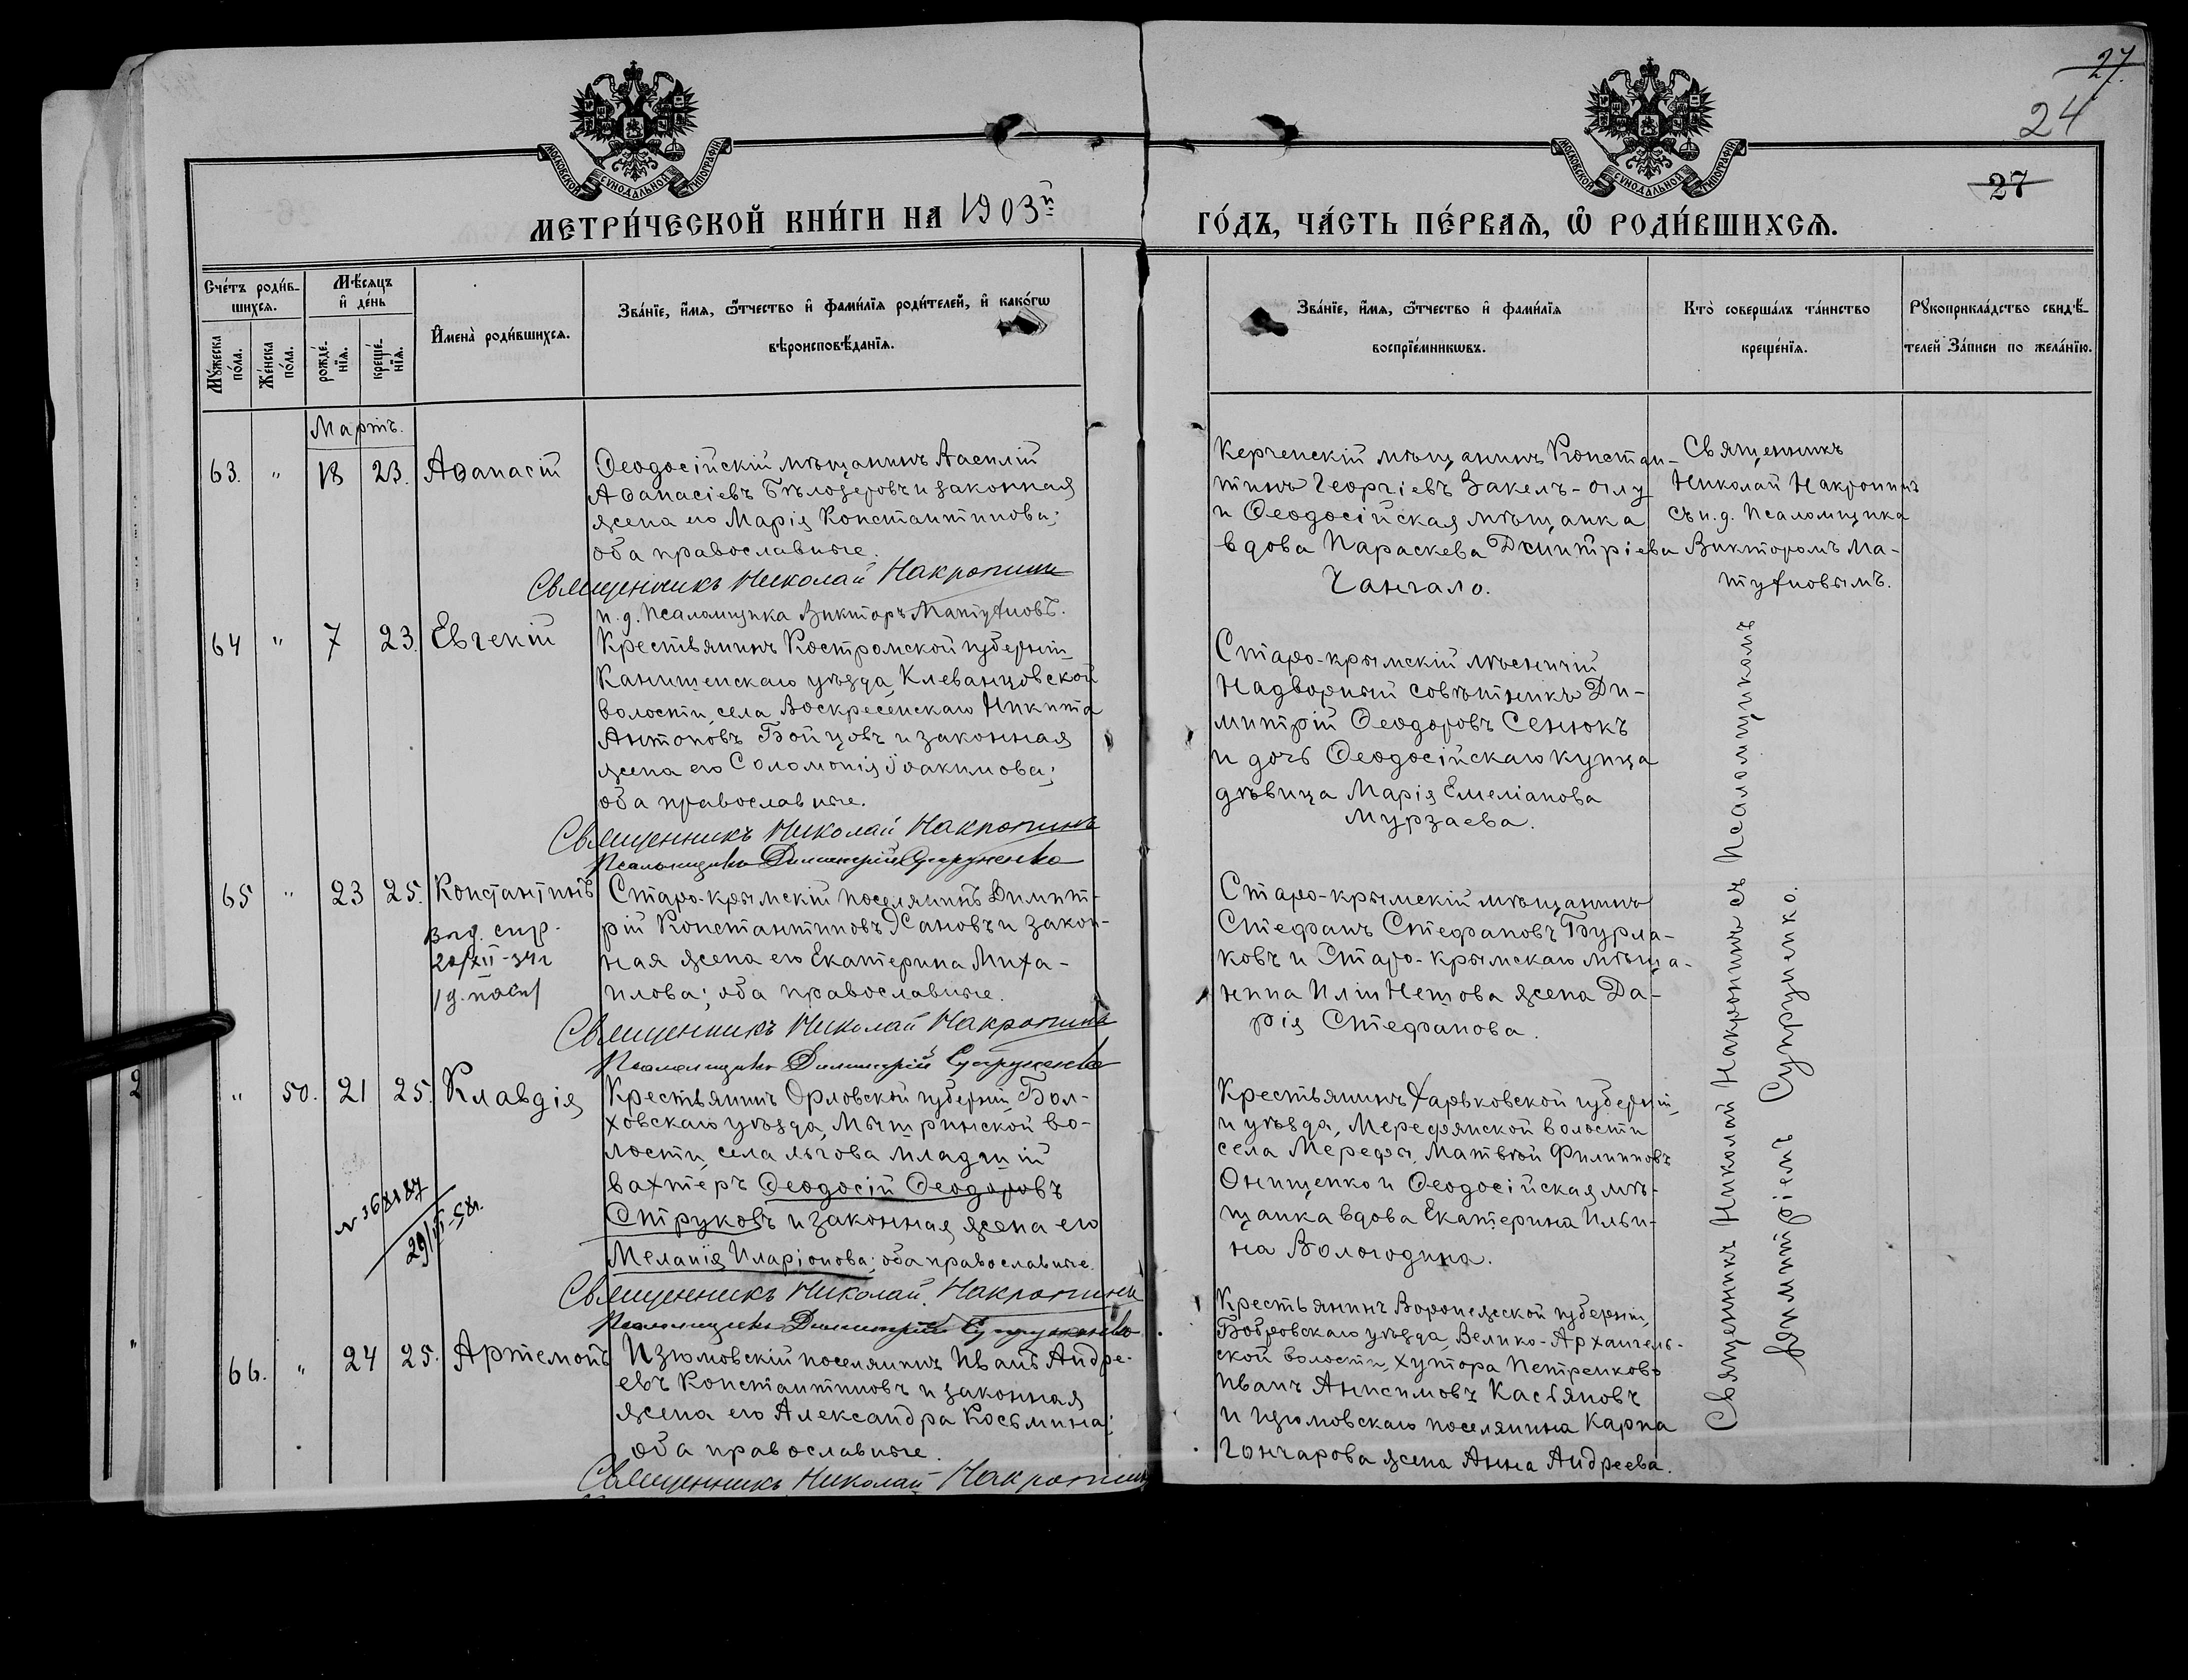 27.
24
27
МОСКОВСКОЙ СѴНОДАЛЬНОЙ ТИПОГРАФІИ
МОСКОВСКОЙ СѴНОДАЛЬНОЙ ТИПОГРАФІИ
МЕТРИ́ЧЕСКОЙ КНИ́ГИ НА 1903й
ГО́ДЪ, ЧА́СТЬ ПЕ́РВАѦ, Ѡ҆ РОДИ́ВШИХСѦ.
Сче́тъ роди́в-
шихсѧ.
Мѣ́сѧцъ
и҆ де́нь
Мꙋ́жеска
по́ла.
Же́нска
по́ла.
рожде́-
нїѧ.
креще́-
нїѧ.
И҆мена̀ роди́вшихсѧ.
Зва́нїе, и҆́мѧ, ѻ҆́тчество и҆ фами́лїѧ роди́телей, и҆ како́гѡ
вѣроисповѣ́данїѧ.
Зва́нїе, и҆́мѧ, ѻ҆́тчество и҆ фами́лїѧ
воспрїе́мникѡвъ.
Кто̀ соверша́лъ та́инство
креще́нїѧ.
Рꙋкоприкла́дство свидѣ́-
телей За́писи по жела́нїю.
Мартъ.
63. " 18 23. Аѳанасій
Ѳеодосійскій мѣщанинъ Василій
Аѳанасіевъ Бѣлозеровъ и законная
жена его Марія Константинова;
оба православные.
Священникъ Николай Накропинъ
и. д. Псаломщика Викторъ Матухновъ.
Керченскій мѣщанинъ Констан-
тинъ Георгіевъ Закелъ-оглу
и Ѳеодосійская мѣщанка
вдова Параскева Димитріева
Чангало.
Священникъ
Николай Накропинъ
съ и. д. Псаломщика
Викторомъ Ма-
тухновымъ.
64 " 7 23. Евгеній
Крестьянинъ Костромской губерніи,
Кинишенскаго уѣзда, Клеванцовской
волости, села Воскресенскаго Никита
Антоновъ Бойцовъ и законная
жена его Соломонія Іоакимова;
оба православные.
Священникъ Николай Накропинъ
Псаломщикъ Димитрій Супруненко
Старо-крымскій лѣсничій
Надворный совѣтникъ Ди-
митрій Ѳеодоровъ Сенюкъ
и дочь Ѳеодосійскаго купца
дѣвица Марія Емеліанова
Мурзаева.
65 " 23 25. Константинъ
выд. спр.
20/XII-34г
Старо-крымскій поселянинъ Димит-
рій Константиновъ Жановъ и закон-
ная жена его Екатерина Миха-
илова; оба православные.
Священникъ Николай Накропинъ
Псаломщикъ Димитрій Супруненко
Старо-крымскій мѣщанинъ
Стефанъ Стефановъ Бурла-
ковъ и Старо-крымскаго мѣща-
нина Иліи Нетова жена Да-
рія Стефанова.
" 50. 21 25. Клавдія
Крестьянинъ Орловской губерніи, Бол-
ховскаго уѣзда, Мытринской во-
лости, села Льгова младшій
вахтеръ Ѳеодосій Ѳеодоровъ
Струковъ и законная жена его
Меланія Иларіонова; оба православные.
Священникъ Николай Накропинъ
Псаломщикъ Димитрій Супруненко
Крестьянинъ Харьковской губерніи,
и уѣзда, Мерефянской волости
села Мерефы, Матвѣй Филипповъ
Онищенко и Ѳеодосійская мѣ-
щанка вдова Екатерина Ильи-
на Вологодина.
66. " 24 25. Артемонъ
Изюмовскій поселянинъ Иванъ Андре-
евъ Константиновъ и законная
жена его Александра Косьмина;
оба православные.
Священникъ Николай Накропинъ
Крестьянинъ Воронежской губерніи,
Бобровскаго уѣзда, Велико-Архангель-
ской волости, хутора Петренково
Иванъ Анисимовъ Касьяновъ
и Изюмовскаго поселянина Карпа
Гончарова жена Анна Андреева.
Священникъ Николай Накропинъ съ Псаломщикомъ
Димитріемъ Супруненко.